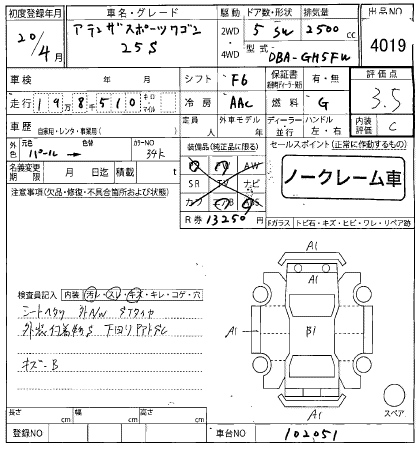 初度登録年月 車名・グレード 駆動 ドア数・形状 排気量 出品NO
20/4月 アテンザスポーツワゴン 25S 2WD 4WD 5 SW 2500cc 4019
型式 DBA-GH5FW
車検 年 月 シフト F6 保証書 有・無 評価点 3.5
走行 198510 キロ マイル 冷房 AAC 燃料 G
車歴 自家用・レンタ・事業用( ) 定員 人 外車モデル 年 ディーラー 並行 ハンドル 左・右 内装評価 C
外色 元色 パール 色替 カラーNO 34K
装備品(純正品に限る) セールスポイント(正常に作動するもの)
名義変更期限 月 日迄 積載 t AW
SR TV ナビ ノークレーム車
注意事項(欠品・修復・不具合箇所および状態)
R券 13250円 Fガラス トビ石・キズ・ヒビ・ワレ・リペア跡
A1
検査員記入 内装 汚レ・スレ・キズ・キレ・コゲ・穴
A1 B1
キズ-B
A1 スペア
長さ cm 幅 cm 高さ cm
登録NO 車台NO 102051